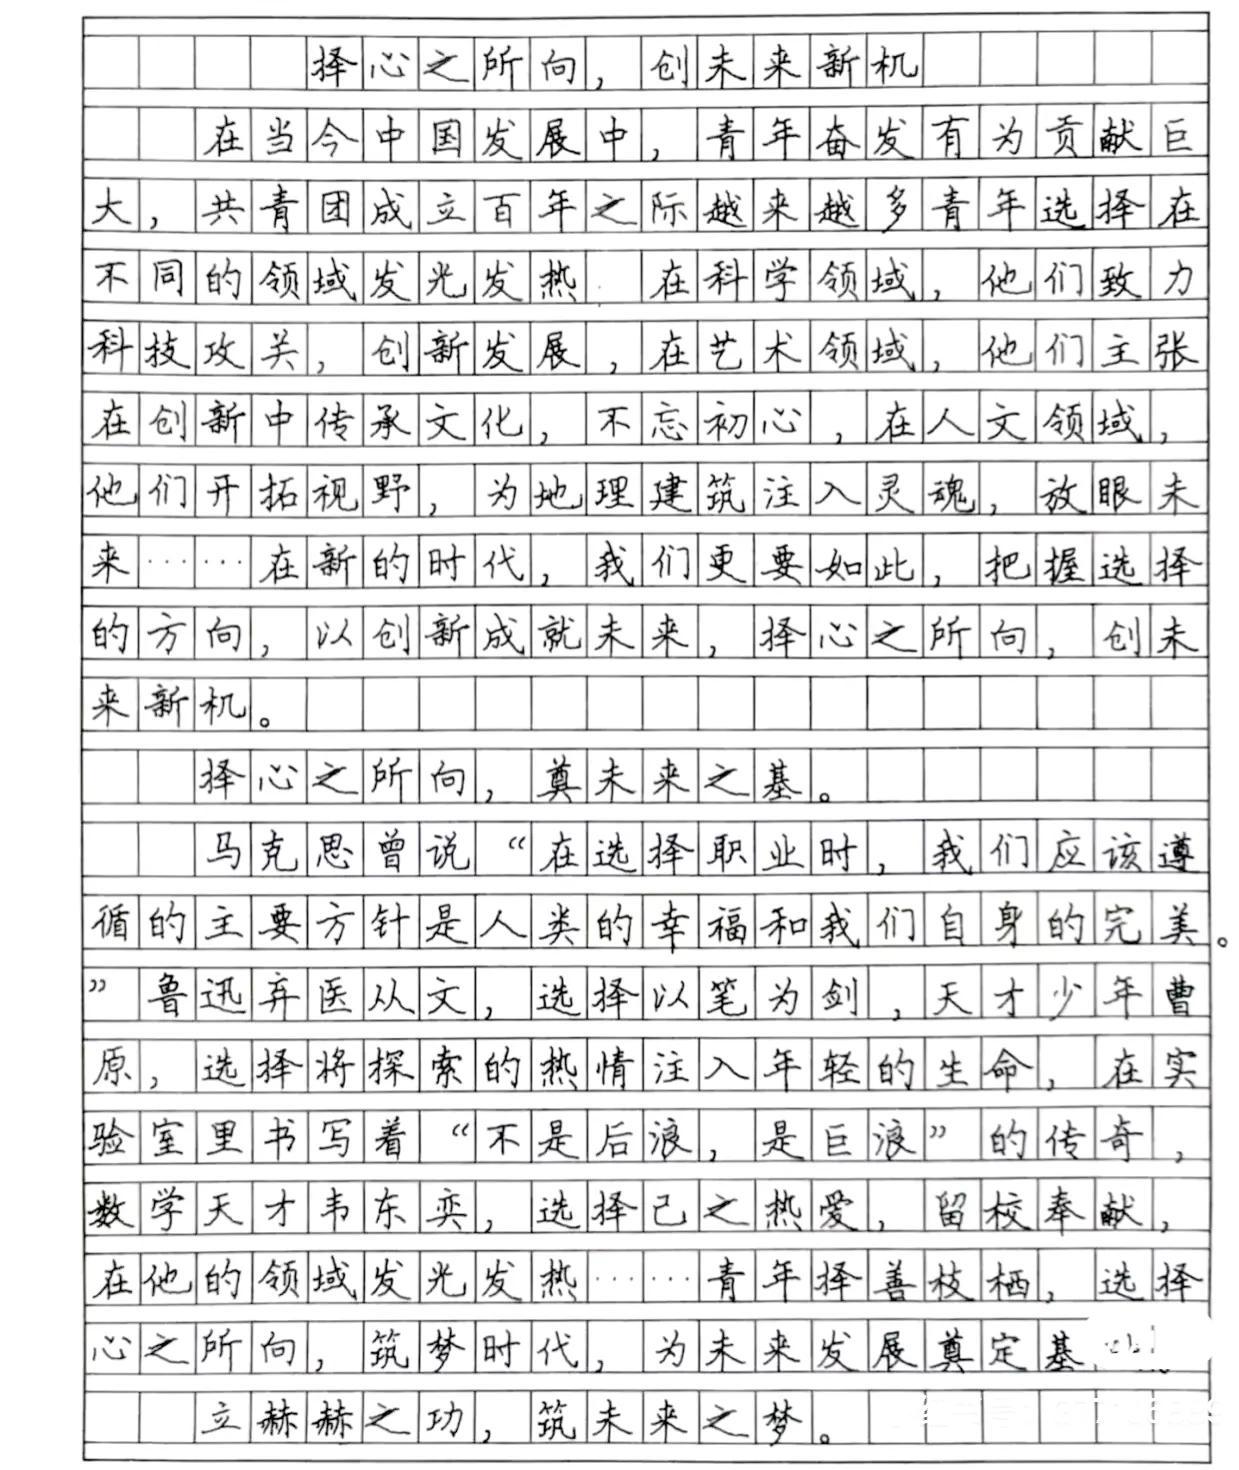 择心之所向，创未来新机
在当今中国发展中，青年奋发有为贡献巨
大，共青团成立百年之际越来越多青年选择在
不同的领域发光发热.在科学领域，他们致力
科技攻关，创新发展，在艺术领域，他们主张
在创新中传承文化，不忘初心，在人文领域，
他们开拓视野，为地理建筑注入灵魂，放眼未
来……在新的时代，我们更要如此，把握选择
的方向，以创新成就未来，择心之所向，创未
来新机。
择心之所向，奠未来之基。
马克思曾说“在选择职业时，我们应该遵
循的主要方针是人类的幸福和我们自身的完美。
”鲁迅弃医从文，选择以笔为剑，天才少年曹
原，选择将探索的热情注入年轻的生命，在实
验室里书写着“不是后浪，是巨浪”的传奇，
数学天才韦东奕，选择己之热爱，留校奉献，
在他的领域发光发热……青年择善枝栖，选择
心之所向，筑梦时代，为未来发展奠定基
立赫赫之功，筑未来之梦。